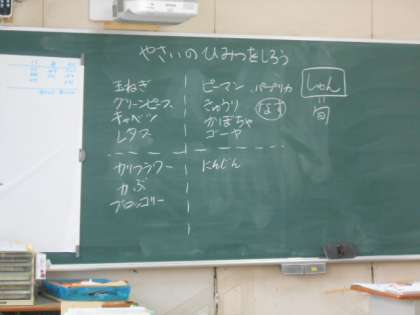 やさいのひみつをしろう
玉ねぎ
グリーンピース
キャベツ
レタス
ピーマン パプリカ
きゅうり なす
かぼちゃ
ゴーヤ
カリフラワー
かぶ
ブロッコリー
にんじん
しゅん
＝
旬